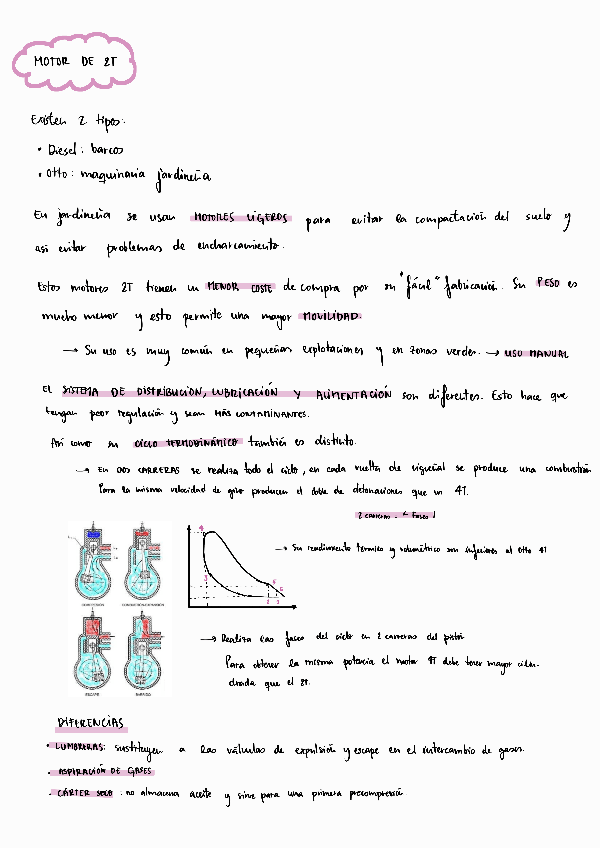 MOTOR DE 2T
Existen 2 tipos:
• Diesel: barcos
• Otto: maquinaria jardinería
En jardinería se usan MOTORES LIGEROS para evitar la compactación del suelo y
así evitar problemas de encharcamiento.
Estos motores 2T tienen un MENOR COSTE de compra por su "fácil" fabricación. Su PESO es
mucho menor y esto permite una mayor MOVILIDAD.
→ Su uso es muy común en pequeñas explotaciones y en zonas verdes. → USO MANUAL
El SISTEMA DE DISTRIBUCIÓN, LUBRICACIÓN Y ALIMENTACIÓN son diferentes. Esto hace que
tengan peor regulación y sean MÁS CONTAMINANTES.
Así como su CICLO TERMODINÁMICO también es distinto.
→ En DOS CARRERAS se realiza todo el ciclo, en cada vuelta de cigüeñal se produce una combustión
Para la misma velocidad de giro producen el doble de detonaciones que un 4T.
2 carreras - 4 fases!
→ Su rendimiento térmico y volumétrico son inferiores al Otto 4T
4
3
5
6
2
1
COMPRESIÓN
ESCAPE
→ Realiza las fases del ciclo en 2 carreras del pistón
Para obtener la misma potencia el motor 4T debe tener mayor cilin-
drada que el 2T.
DIFERENCIAS
• LUMBRERAS: sustituyen a las válvulas de expulsión y escape en el intercambio de gases.
• ASPIRACIÓN DE GASES
• CÁRTER SECO: no almacena aceite y sirve para una primera precompresión